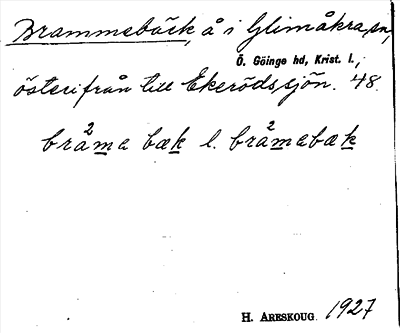 Brammebäck, å i Glimåkra, sn,
Ö. Göinge hd, Krist. l.;
österifrån till Ekeröds sjön. 48.
brå2ma bæk l. brå2mabæk
H. ARESKOUG. 1927